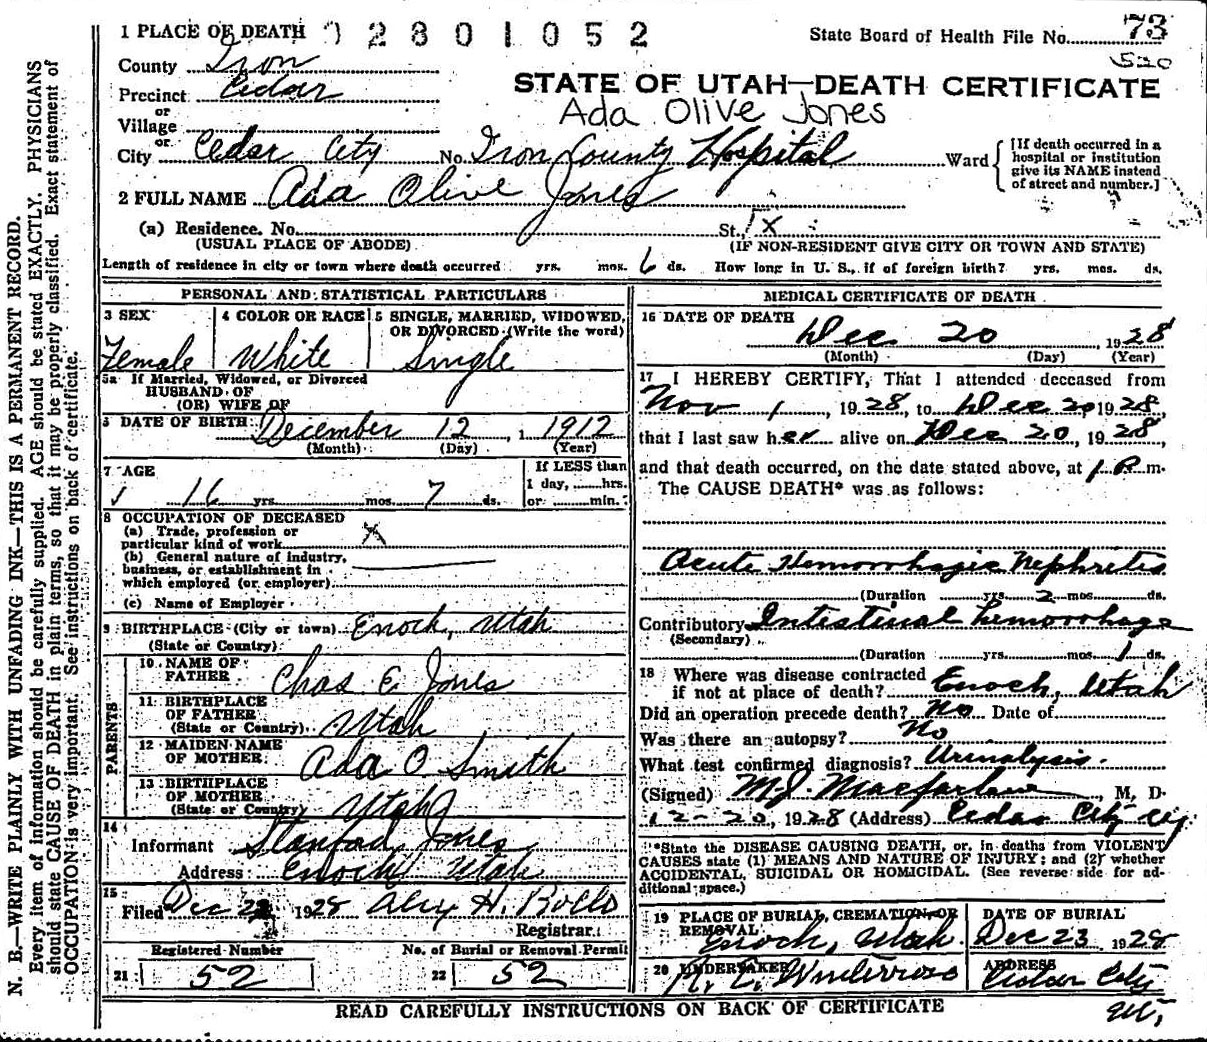 1 PLACE OF DEATH 2801052
State Board of Health File No. 73
520
County Iron
STATE OF UTAH—DEATH CERTIFICATE
Precinct Cedar
Ada Olive Jones
or
Village
or
City Cedar City No. Iron County Hospital Ward
[If death occurred in a hospital or institution give its NAME instead of street and number.]
2 FULL NAME Ada Olive Jones
(a) Residence. No. St., x
(USUAL PLACE OF ABODE) (IF NON-RESIDENT GIVE CITY OR TOWN AND STATE)
Length of residence in city or town where death occurred yrs. mos. 6 ds. How long in U. S., if of foreign birth? yrs. mos. ds.
PERSONAL AND STATISTICAL PARTICULARS
3 SEX 4 COLOR OR RACE 5 SINGLE, MARRIED, WIDOWED, OR DIVORCED (Write the word)
Female White Single
5a If Married, Widowed, or Divorced
HUSBAND OF
(OR) WIFE OF
6 DATE OF BIRTH December 12, 1912
(Month) (Day) (Year)
7 AGE If LESS than
16 yrs. mos. 7 ds. 1 day, hrs.
or min.
8 OCCUPATION OF DECEASED
(a) Trade, profession or
particular kind of work x
(b) General nature of industry,
business, or establishment in
which employed (or employer)
(c) Name of Employer
9 BIRTHPLACE (City or town) Enoch, Utah
(State or Country)
PARENTS
10 NAME OF
FATHER Chas E Jones
11 BIRTHPLACE
OF FATHER Utah
(State or Country)
12 MAIDEN NAME
OF MOTHER Ada O. Smith
13 BIRTHPLACE
OF MOTHER Utah
(State or Country)
14
Informant Stanford Jones
Address Enoch Utah
15
Filed Dec 1928
Registrar
Registered Number No. of Burial or Removal Permit
21 52 22 52
MEDICAL CERTIFICATE OF DEATH
16 DATE OF DEATH
Dec 20, 1928
(Month) (Day) (Year)
17 I HEREBY CERTIFY, That I attended deceased from
Nov 1, 1928, to Dec 20 1928,
that I last saw her alive on Dec 20, 1928,
and that death occurred, on the date stated above, at 1 P.m.
The CAUSE DEATH* was as follows:
Acute Hemorrhagic Nephritis
(Duration yrs. 2 mos. ds.
Contributory Intestinal hemorrhage
(Secondary)
(Duration yrs. mos. 1 ds.
18 Where was disease contracted
if not at place of death? Enoch, Utah
Did an operation precede death? No Date of
Was there an autopsy? No
What test confirmed diagnosis? Urinalysis.
(Signed) M.J. Macfarlane, M. D.
12-20, 1928 (Address) Cedar City
*State the DISEASE CAUSING DEATH, or, in deaths from VIOLENT
CAUSES state (1) MEANS AND NATURE OF INJURY; and (2) whether
ACCIDENTAL, SUICIDAL OR HOMICIDAL. (See reverse side for ad-
ditional space.)
19 PLACE OF BURIAL, CREMATION, OR DATE OF BURIAL
REMOVAL
Enoch, Utah. Dec 23, 1928
20 UNDERTAKER ADDRESS
Cedar City
Ut.
READ CAREFULLY INSTRUCTIONS ON BACK OF CERTIFICATE
N. B.—WRITE PLAINLY WITH UNFADING INK—THIS IS A PERMANENT RECORD.
Every item of information should be carefully supplied. AGE should be stated EXACTLY. PHYSICIANS
should state CAUSE OF DEATH in plain terms, so that it may be properly classified. Exact statement of
OCCUPATION is very important. See instructions on back of certificate.